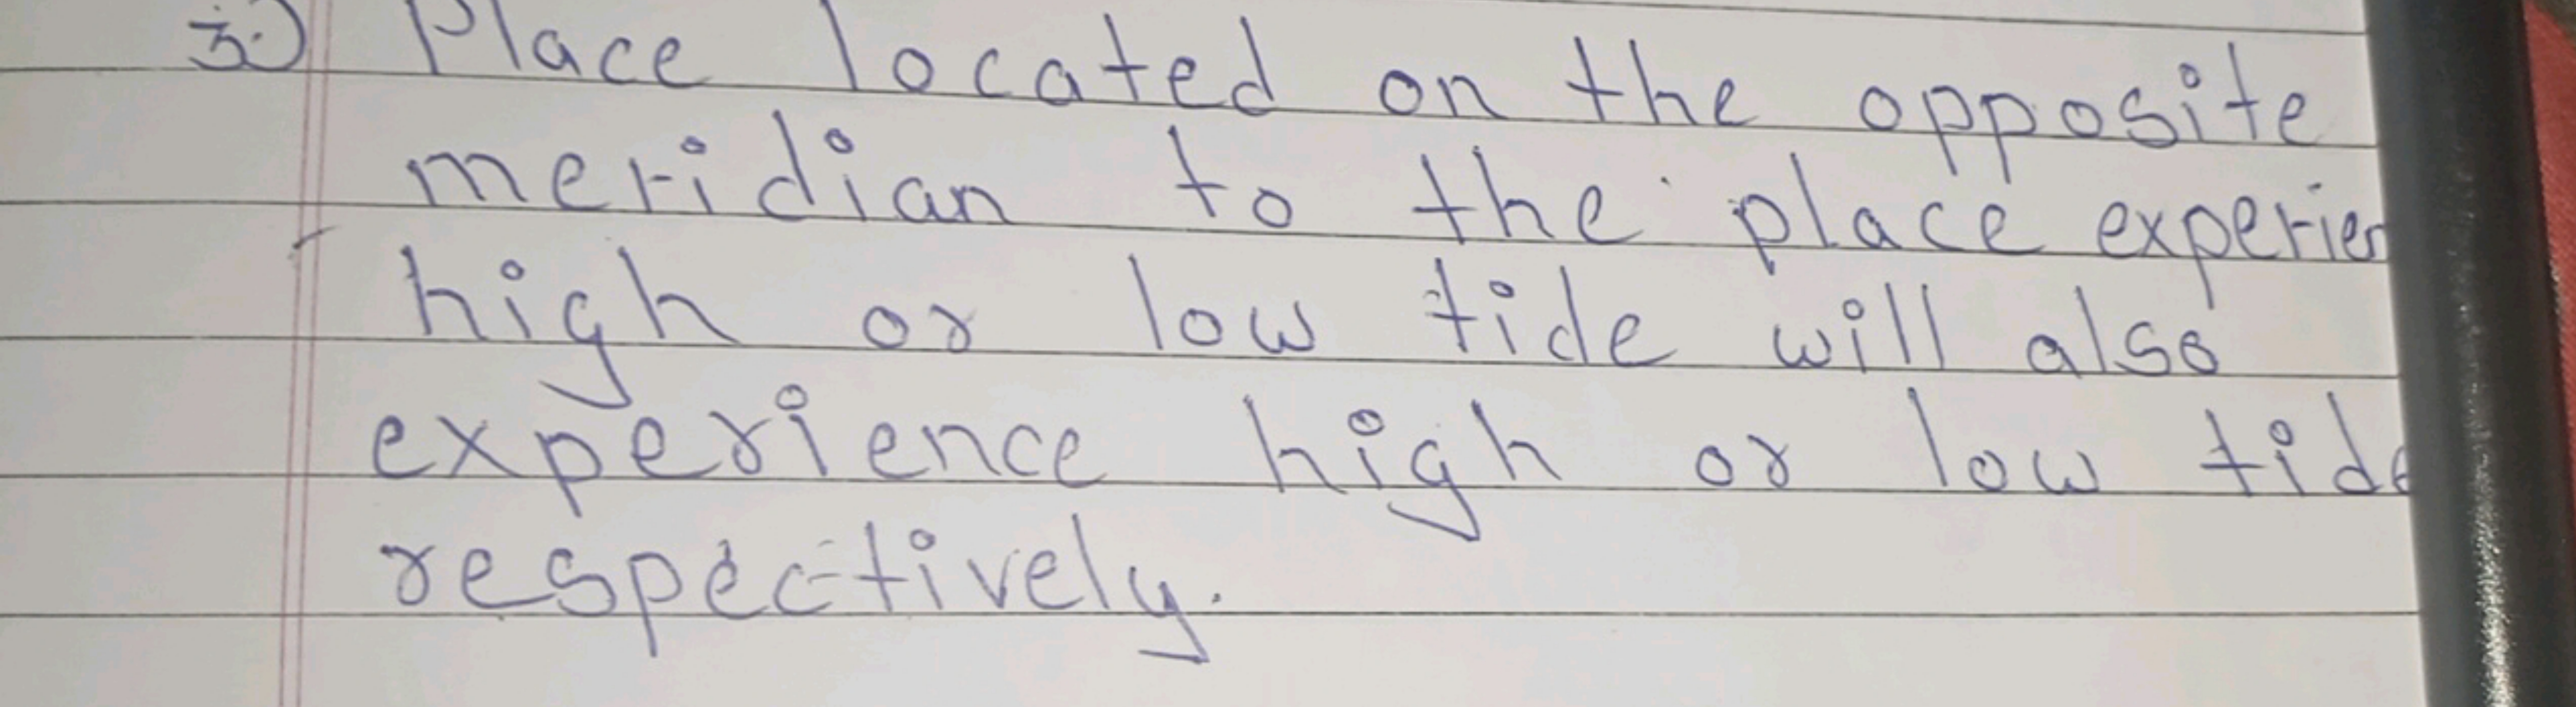 3.) Place located on the opposite
meridian to the place experien
high or low tide will also
experience high or low tide
respectively.